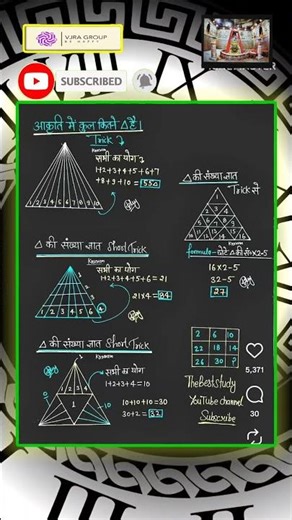 VJRA GROUP
BE HAPPY
SUBSCRIBED
आकृति में कुल कितने △ है।
Trick
सभी का योग
1+2+3+4+5+6+7
+8+9+10 = 550
1 2 3 4 5 6 7 8 9 10
△ की संख्या ज्ञात
Trick से
formula - छोटे △ की सं×2-5
16×2-5
32-5
27
△ की संख्या ज्ञात Short Trick
सभी का योग
1+2+3+4+5+6 = 21
21×4 = 84
1 2 3 4 5 6
△ की संख्या ज्ञात Short Trick
सभी का योग
1+2+3+4 = 10
10+10+10 = 30
30+2 = 32
1 2 3 4
1
10
10
2 6 10
22 18 14
26 30 ?
TheBestStudy
YouTube channel
Subscribe
5,371
30